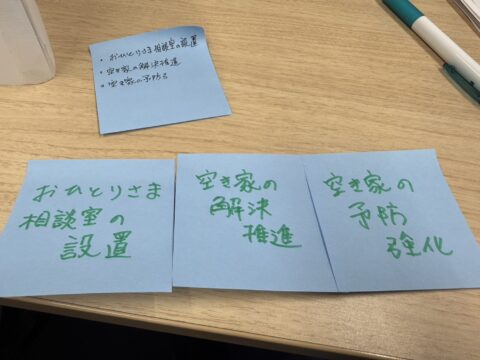 ・おひとりさま相談室の設置
・空き家の解決推進
・空き家の予防
おひとりさま
相談室の
設置
空き家の
解決
推進
空き家の
予防
強化